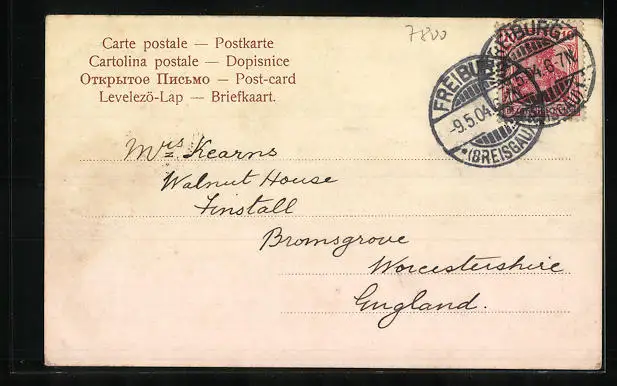 7800
Carte postale — Postkarte
Cartolina postale — Dopisnice
Открытое Письмо — Post-card
Levelező-Lap — Briefkaart.
FREIBURG
-9.5.04. 6-7N.
*(BREISGAU)
Mrs Kearns
Walnut House
Finstall
Bromsgrove
Worcestershire
England.